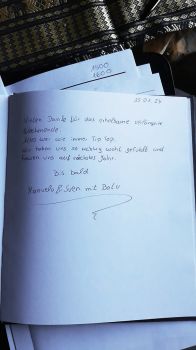 25.01.26
1500
1600
Vielen Dank für das erholsame verlängerte
Wochenende.
Alles war wie immer Tip top.
Wir haben uns so richtig wohl gefühlt und
freuen uns auf nächstes Jahr.
Bis bald
Manuela & Sven mit Balu